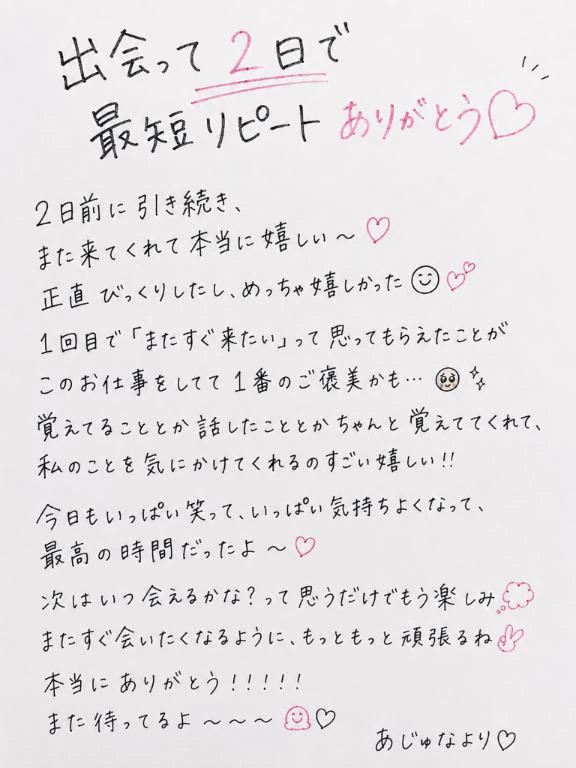 出会って2日で
最短リピートありがとう♡
2日前に引き続き、
また来てくれて本当に嬉しい〜♡
正直びっくりしたし、めっちゃ嬉しかった😊💕
1回目で「またすぐ来たい」って思ってもらえたことが
このお仕事をしてて1番のご褒美かも…🥹✨
覚えてることとか話したこととかちゃんと覚えててくれて、
私のことを気にかけてくれるのすごい嬉しい!!
今日もいっぱい笑って、いっぱい気持ちよくなって、
最高の時間だったよ〜♡
次はいつ会えるかな?って思うだけでもう楽しみ💭
またすぐ会いたくなるように、もっともっと頑張るね✌
本当にありがとう!!!!!
また待ってるよ〜〜〜🤗♡
あじゅなより♡